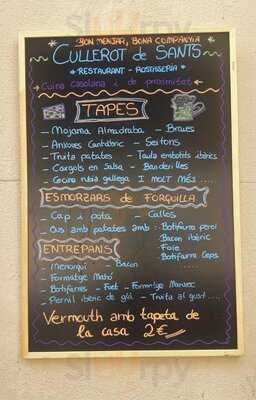 BON MENJAR, BONA COMPANYIA
CULLEROT de SANTS
* RESTAURANT - ROSTISSERIA *
Cuina casolana i de proximitat
TAPES
- Mojama Almadraba - Braves
- Anxoves Cantàbric - Seitons
- Truita patates - Taula embotits ibèrics
- Cargols en Salsa - Banderilles
- Cecina rubia gallega I MOLT MÉS ....
ESMORZARS de FORQUILLA
- Cap i pota - Callos
- Ous amb patates amb : • Botifarra perol
• Bacon ibèric
• Foie
• Botifarra Ceps
ENTREPANS
- Menorquí - Bacon ....
- Formatge Mahó
- Botifarres - Fuet - Formatge Manxec
- Pernil ibèric de glà - Truita al gust ....
Vermouth amb tapeta de
la casa 2€